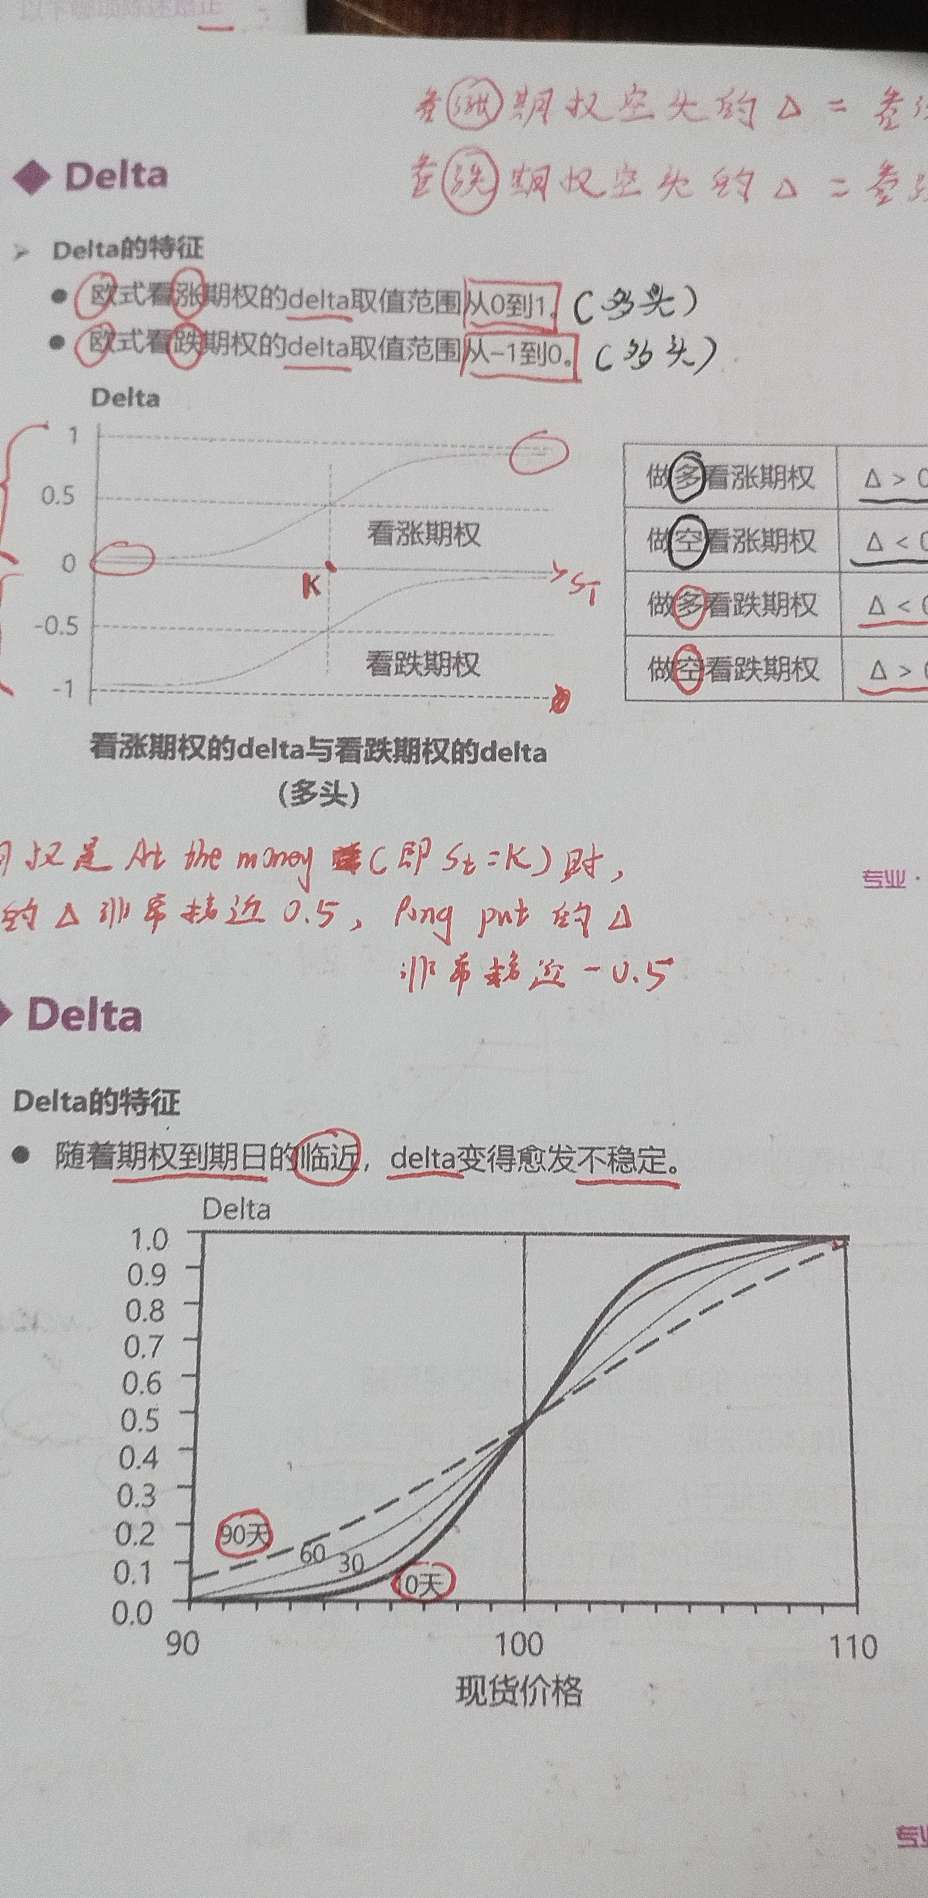 看涨期权空头的Δ = 看涨
看跌期权空头的Δ = 看涨
Delta
Delta的特征
欧式看张期权的delta取值范围从0到1。(多头)
欧式看跌期权的delta取值范围从-1到0。(多头)
Delta
1
0.5
0
-0.5
-1
看涨期权
K
ST
看跌期权
做多看涨期权 Δ > 0
做空看涨期权 Δ < 0
做多看跌期权 Δ < 0
做空看跌期权 Δ > 0
看涨期权的delta与看跌期权的delta
(多头)
权是 At the money (即 St=K)时,
的Δ非常接近0.5, long put 的Δ
非常接近-0.5
专业·
Delta
Delta的特征
随着期权到期日的临近，delta变得愈发不稳定。
Delta
1.0
0.9
0.8
0.7
0.6
0.5
0.4
0.3
0.2
0.1
0.0
90天
60
30
0天
90 100 110
现货价格
专业